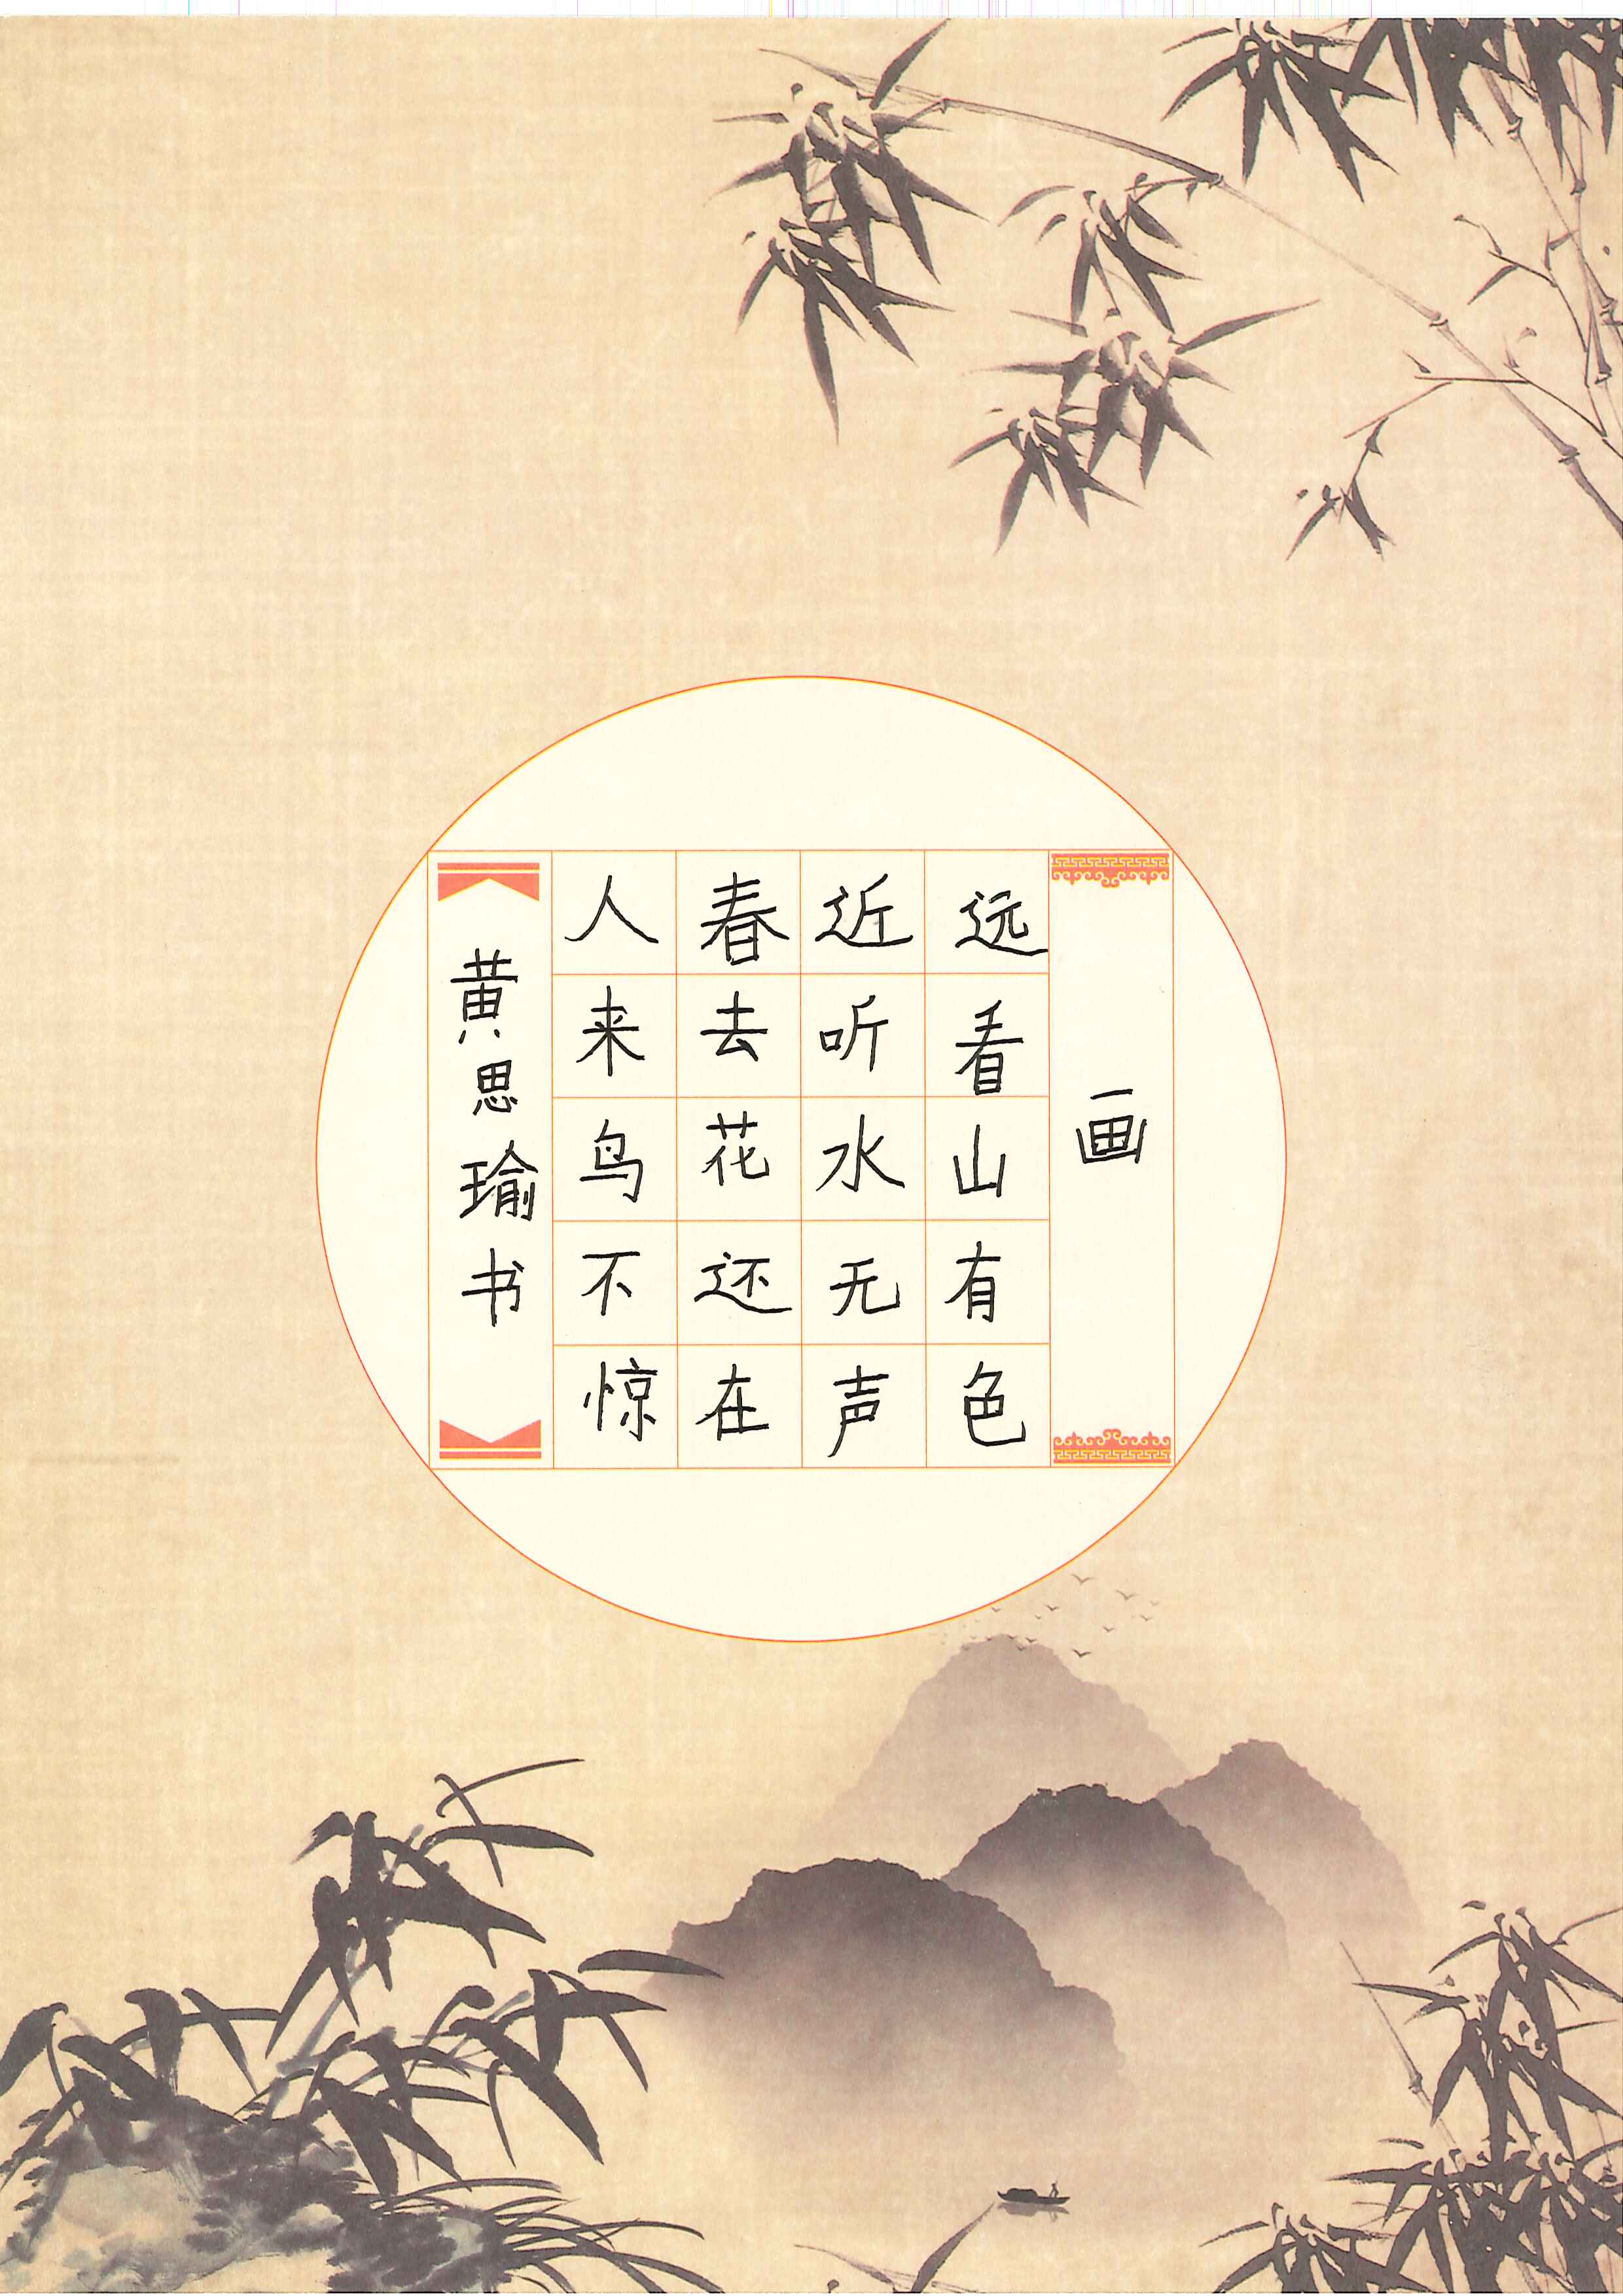 画
远看山有色
近听水无声
春去花还在
人来鸟不惊
黄思瑜书